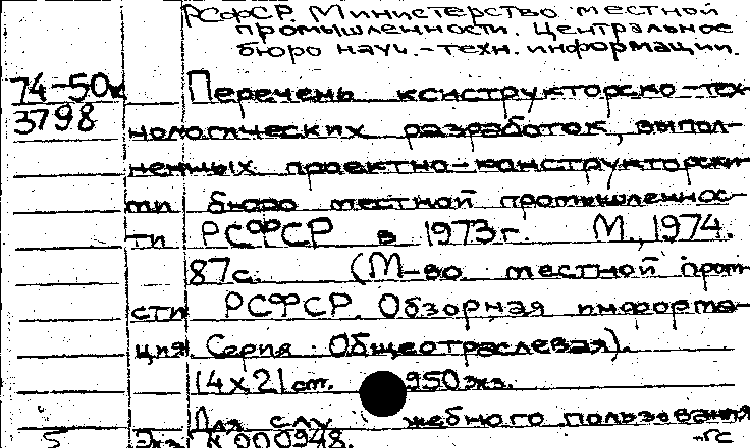 РСФСР. Министерство местной
промышленности. Центральное
бюро науч.-техн. информации.
74-50к
3798
Перечень конструкторско-тех-
нологических разработок, выпол-
ненных проектно-конструкторски-
ми бюро местной промышленнос-
ти РСФСР в 1973 г. М., 1974.
87 с. (М-во местной пром
сти РСФСР. Обзорная информа-
ция Серия: Общеотраслевая).
14х21 см. 950 экз.
Для служебного пользования
5 Экз N 000948. гс